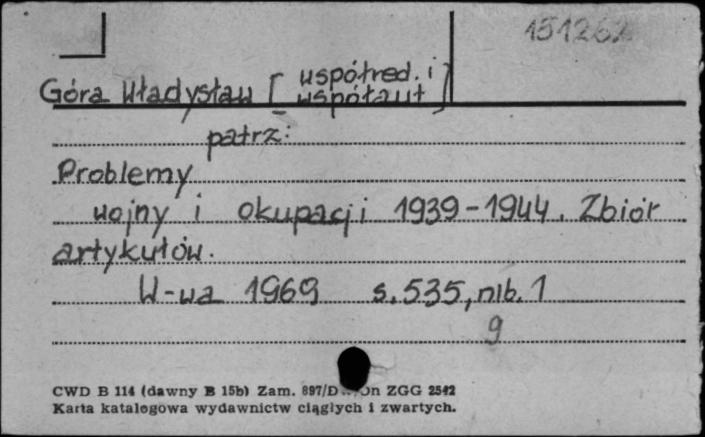 151262
Góra Władysław [współred. i współaut]
patrz:
Problemy
wojny i okupacji 1939-1944. Zbiór
artykułów.
W-wa 1969 s. 535, nlb. 1
9
CWD B 114 (dawny B 15b) Zam. 897/D Dn ZGG 2542
Karta katalogowa wydawnictw ciągłych i zwartych.